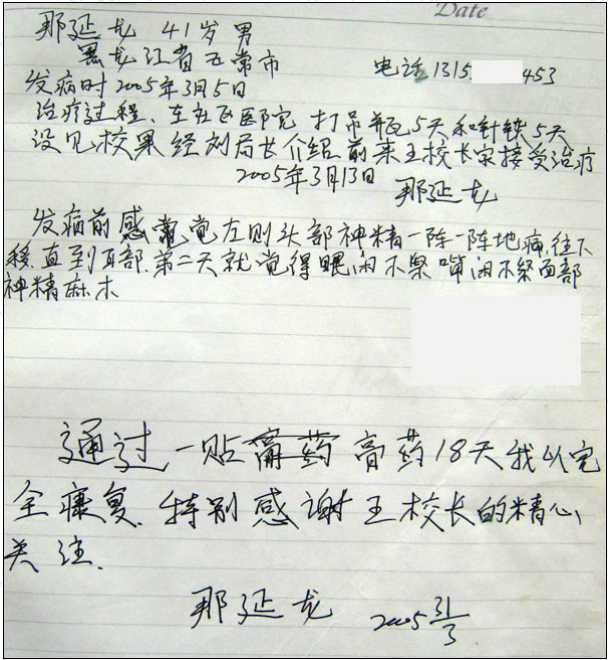 Date
那延龙 41岁 男
黑龙江省五常市
电话1315 453
发病时2005年3月5日
治疗过程、在社区医院 打吊瓶5天和针铁5天
没见校果经刘局长介绍前来王校长家接受治疗
2005年3月13日 那延龙
发病前感觉左则头部神精一阵一阵地痛,往下
移,直到耳部.第二天就觉得眼闭不紧嘴闭不紧面部
神精麻木
通过一贴膏药18天我以完
全康复.特别感谢王校长的精心
关注.
那延龙 2005 31/3